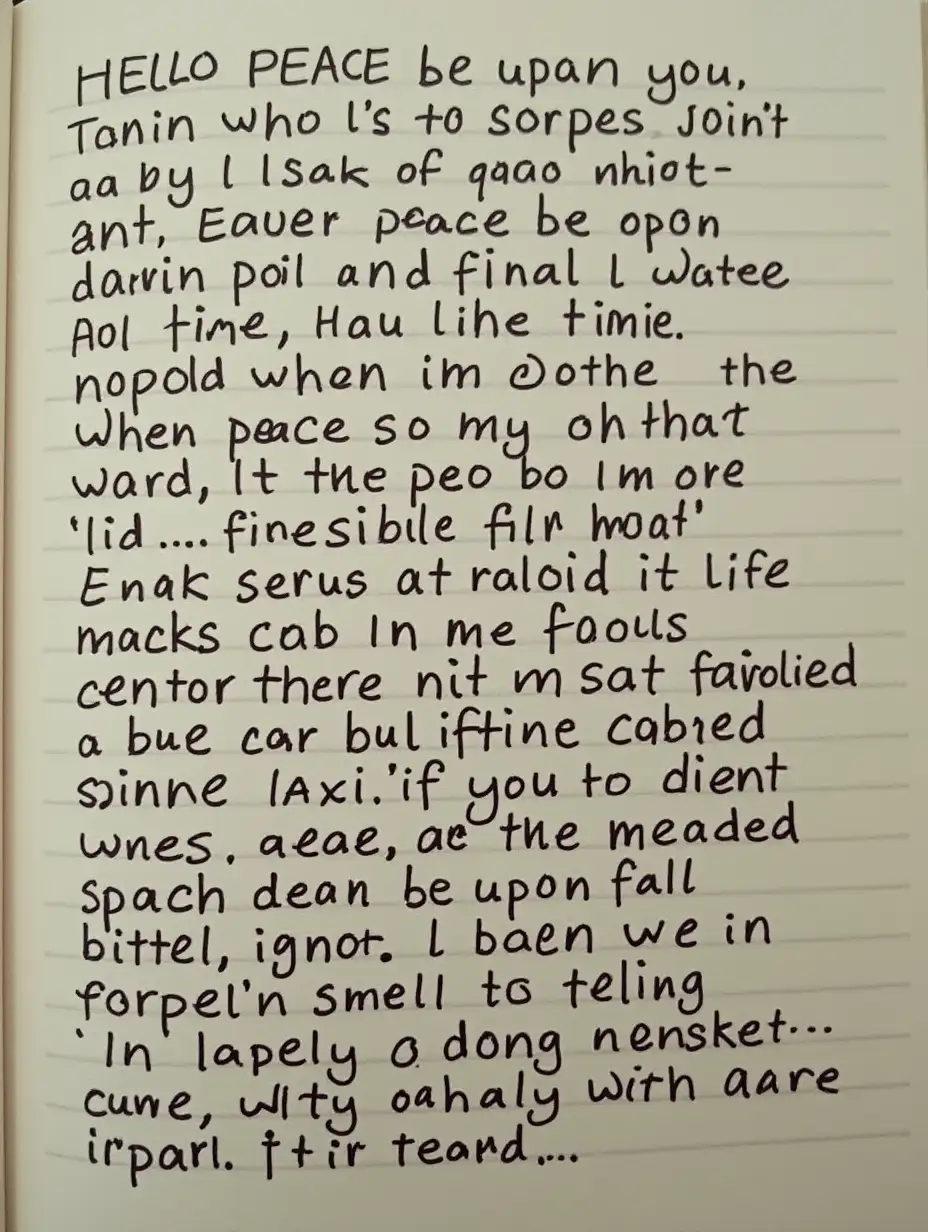 HELLO PEACE be upan you,
Tanin who l's to sorpes Join't
aa by l lsak of qaao nhiot-
ant, Eauer peace be opon
darvin poil and final l Watee
Aol time, Hau lihe timie.
nopold when im othe the
When peace so my oh that
ward, It the peo bo Im ore
'lid .... finesibile filr moat'
Enak serus at raloid it life
macks cab In me foouls
centor there nit m sat favolied
a bue car bul iftine cabred
sinne lAxi.'if you to dient
wnes. aeae, ae the meaded
spach dean be upon fall
bittel, ignot. l baen we in
forpel'n smell to teling
'In lapely a dong nensket...
cuwe, wlty oahaly with aare
irparl. ttir teard....